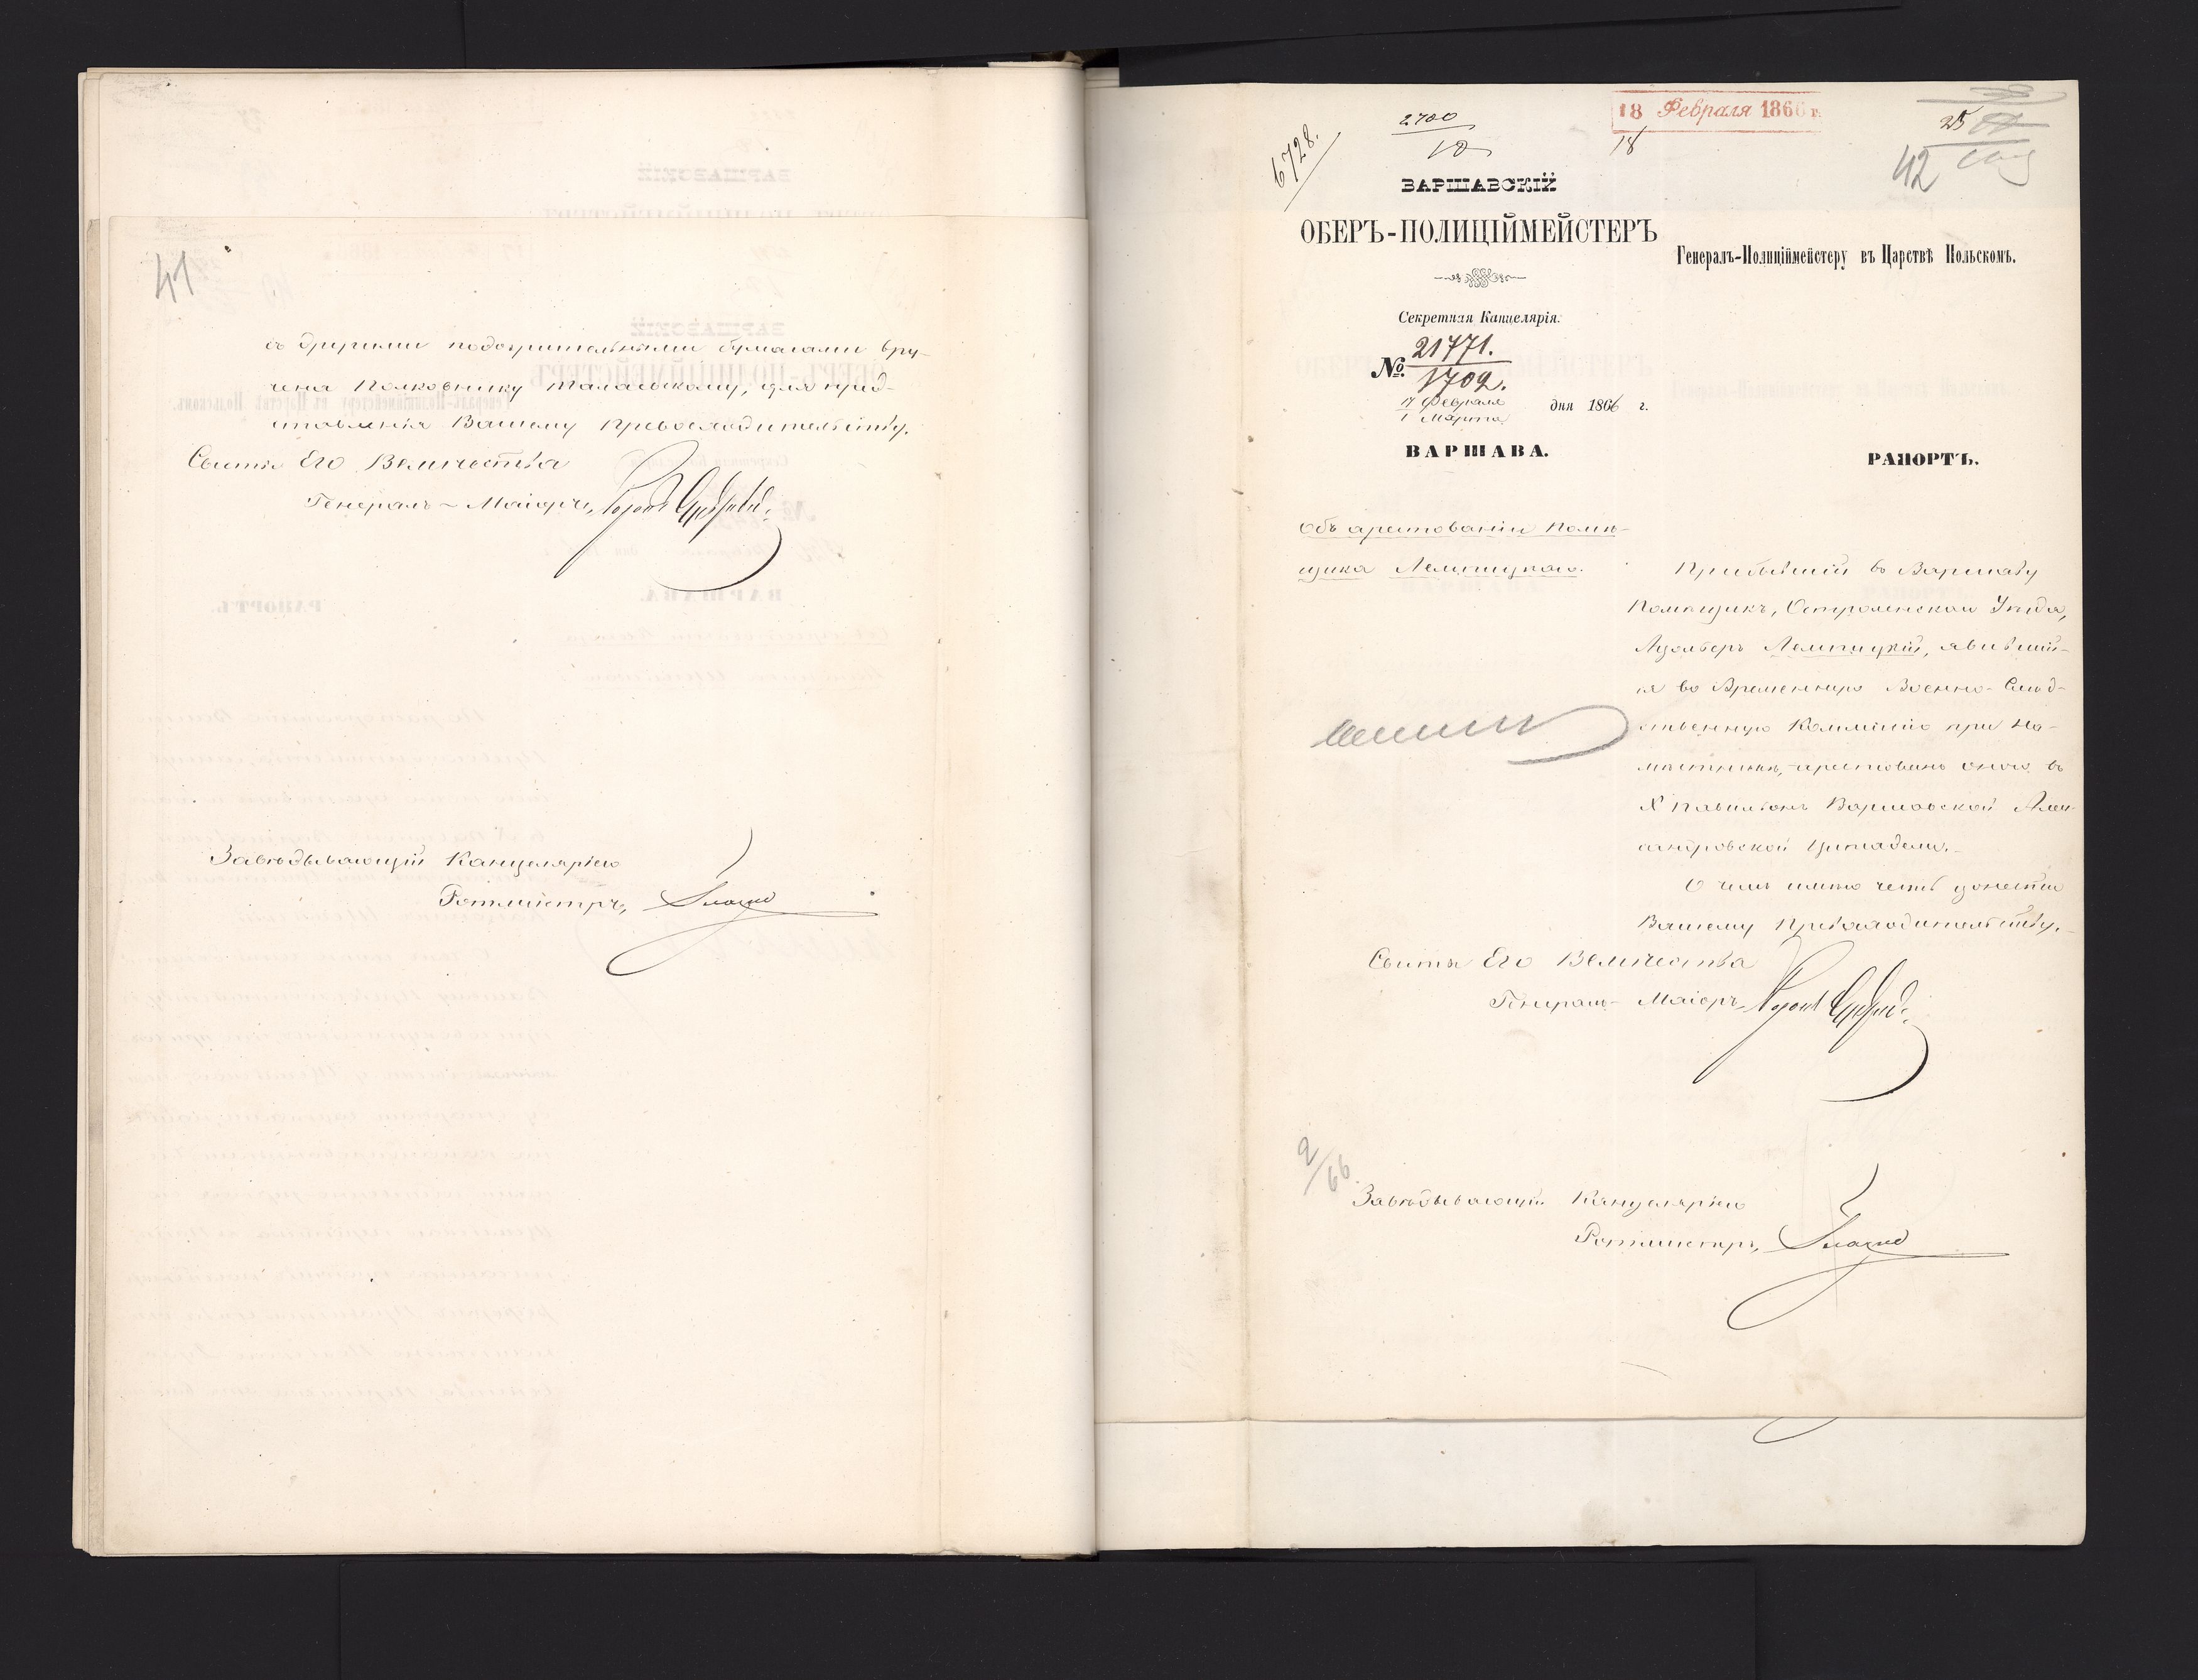 41
съ другими подозрительными бумагами вру-
чена Полковнику Таласскому, для пред-
ставленія Вашему Превосходительству.
Свиты Его Величества
Генералъ-Маіоръ, Баронъ
Завѣдывающій Канцеляріею
Ротмистръ,
6728.
2700
18
18 Февраля 1866 г.
18
25
42
ВАРШАВСКІЙ
ОБЕРЪ-ПОЛИЦІЙМЕЙСТЕРЪ
Генералъ-Полиціймейстеру въ Царствѣ Польскомъ.
Секретная Канцелярія.
№ 21771.
1702.
17 Февраля
1 Марта дня 1866 г.
ВАРШАВА.
РАПОРТЪ.
Объ арестованіи Помѣ-
щика Лемпицкаго.
Прибывшій въ Варшаву
Помѣщикъ, Остроленскаго Уѣзда,
Адольфъ Лемпицкій, явившій-
ся во Временную Военно-Слѣд-
ственную Коммисію при На-
мѣстникѣ, арестованъ оною въ
X Павильонъ Варшавской Алек-
сандровской Цитадели.
О чемъ имѣю честь донести
Вашему Превосходительству.
Свиты Его Величества
Генералъ-Маіоръ, Баронъ
2/66.
Завѣдывающій Канцеляріею
Ротмистръ,